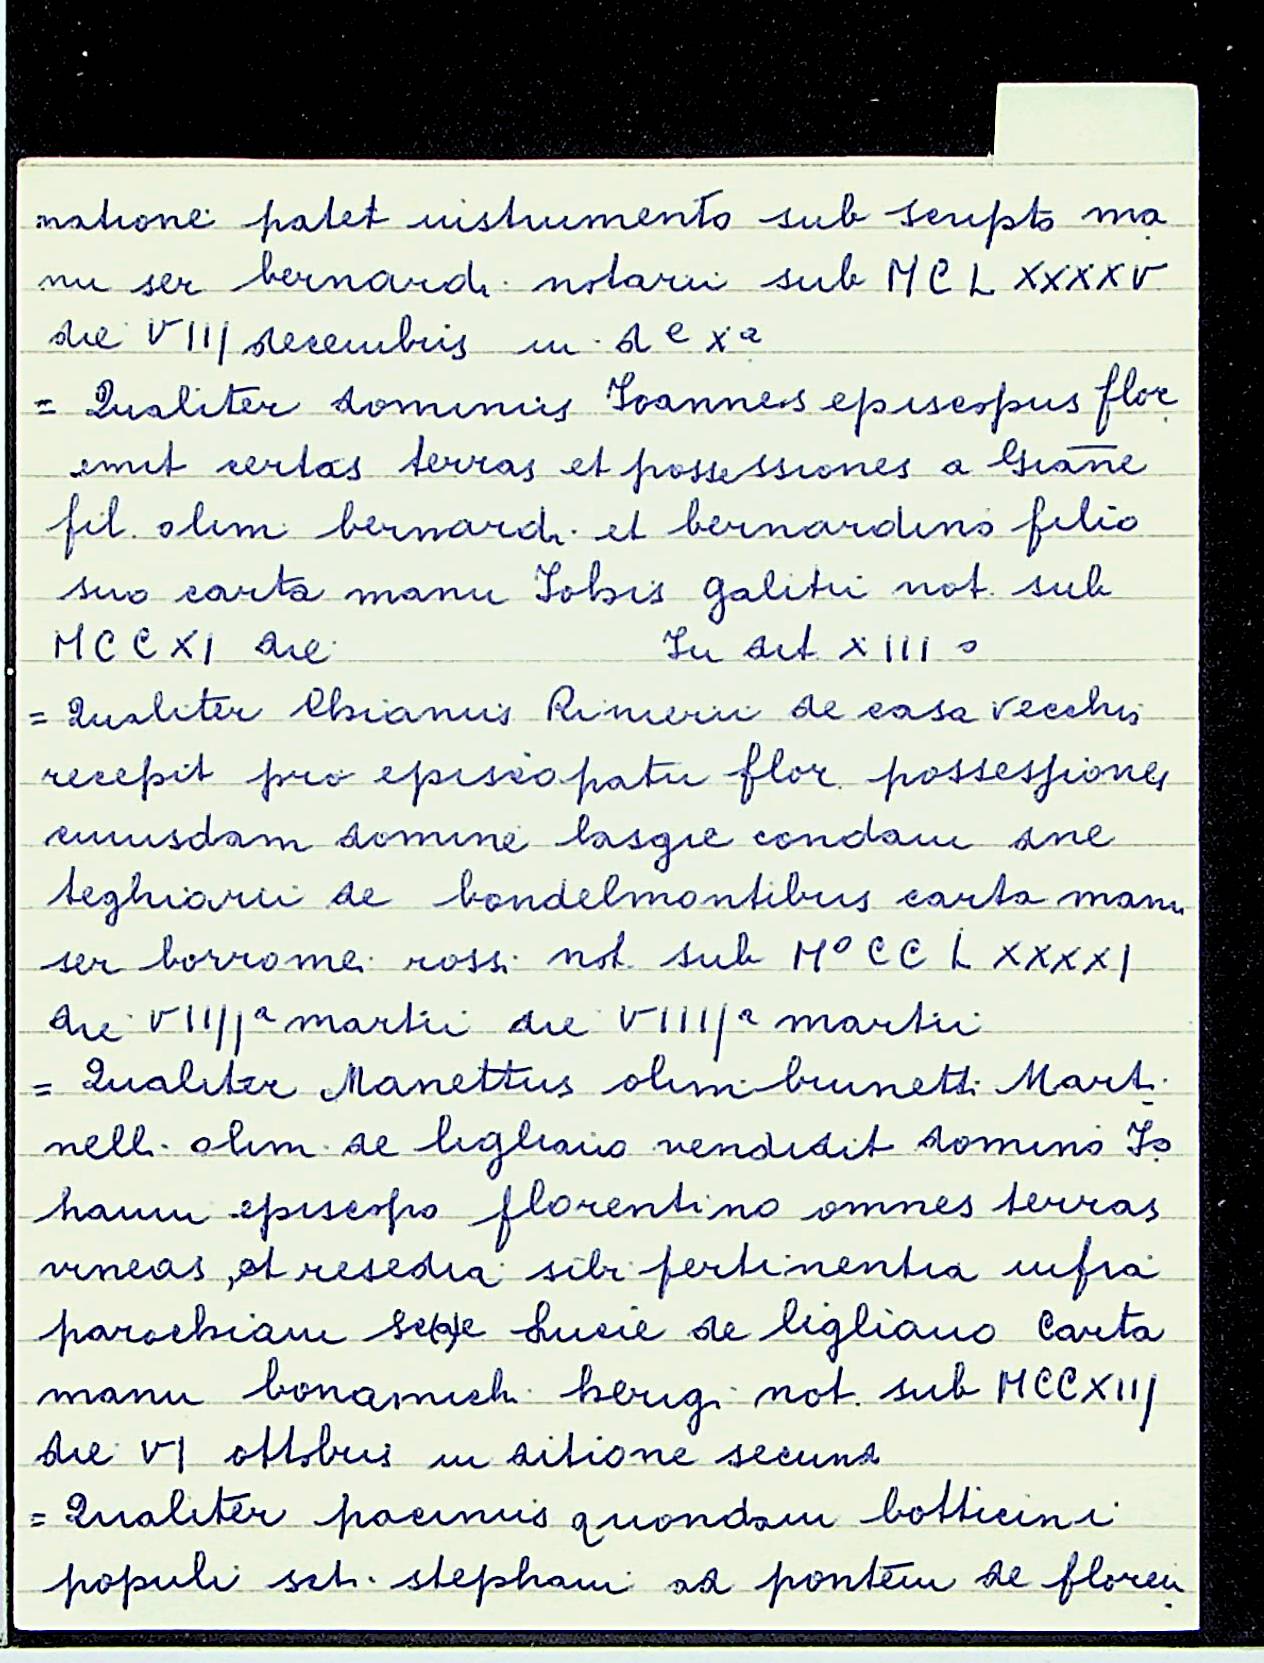 natione patet instrumento sub scripto ma
nu ser bernardi notarii sub MCLXXXXV
die VIII decembris in de Xa
= Qualiter dominus Joannes episcopus flor
emit certas terras et possessiones a Gianē
fil. olim bernardi et bernardino filio
suo carta manu Johis galitii not. sub
MCCXI die In dit XIII o
= Qualiter Chianus Rinierii de casa vecchi
recepit pro episcopatu flor possessiones
cuiusdam domine lasgie condam dne
teghiarii de bondelmontibus carta manu
ser borromei rossi not sub Mº CCLXXXXI
die VIIIIa martii die VIIIIa martii
= Qualiter Manettus olim brunetti Marti
nelli olim de ligliano vendidit domino Jo
hanni episcopo florentino omnes terras
vineas, et resedia sibi pertinentia infra
parochiam Sc(a)e Lucie de ligliano Carta
manu bonamich. berigi not. sub MCCXIII
die VI ottobris in ditione secund
= Qualiter pacinus quondam botticini
populi scti stephani ad pontem de floren